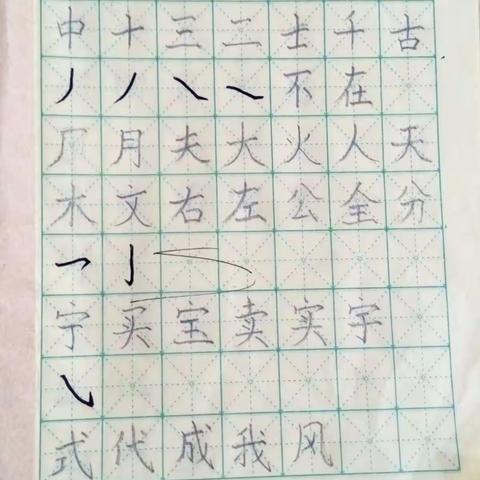 中十三二士千古
丿丿㇏㇏不在
厂月夫大火人天
木文右左公全分
乛亅
宁买宝卖实字
㇂
式代成我风